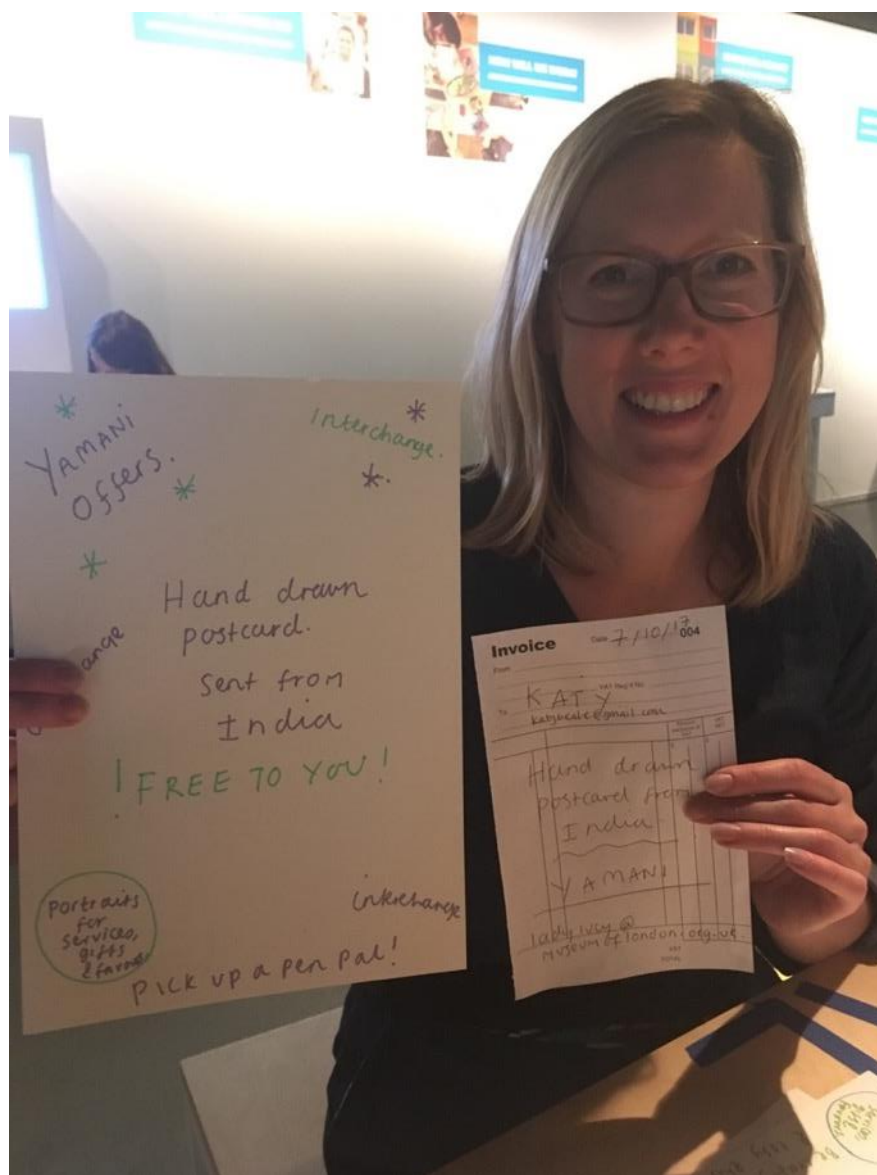 YAMANI
Offers.
Interchange.
Hand drawn
postcard.
Sent from
India
! FREE TO YOU !
portraits
for
services,
gifts
interchange
Pick up a pen pal!
Invoice
Date 7/10/17
004
From
To KATY
Hand drawn
postcard from
India
YAMANI
museumoflondon.org.uk
TOTAL